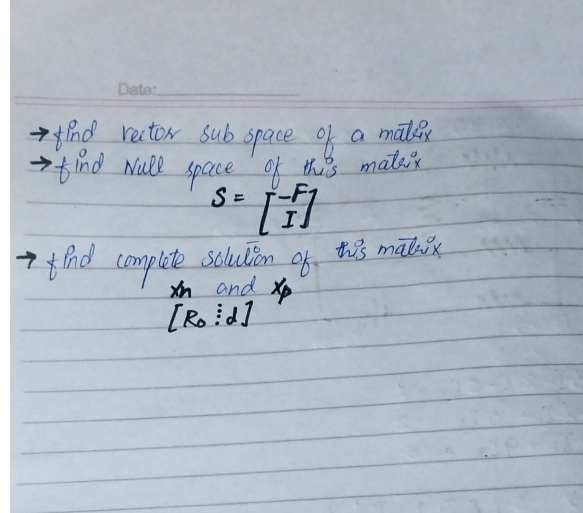 Date:
→ find vector sub space of a matrix
→ find Null space of this matrix
S = [-F
I]
→ find complete solution of this matrix
xn and xp
[R₀ ⋮ d]